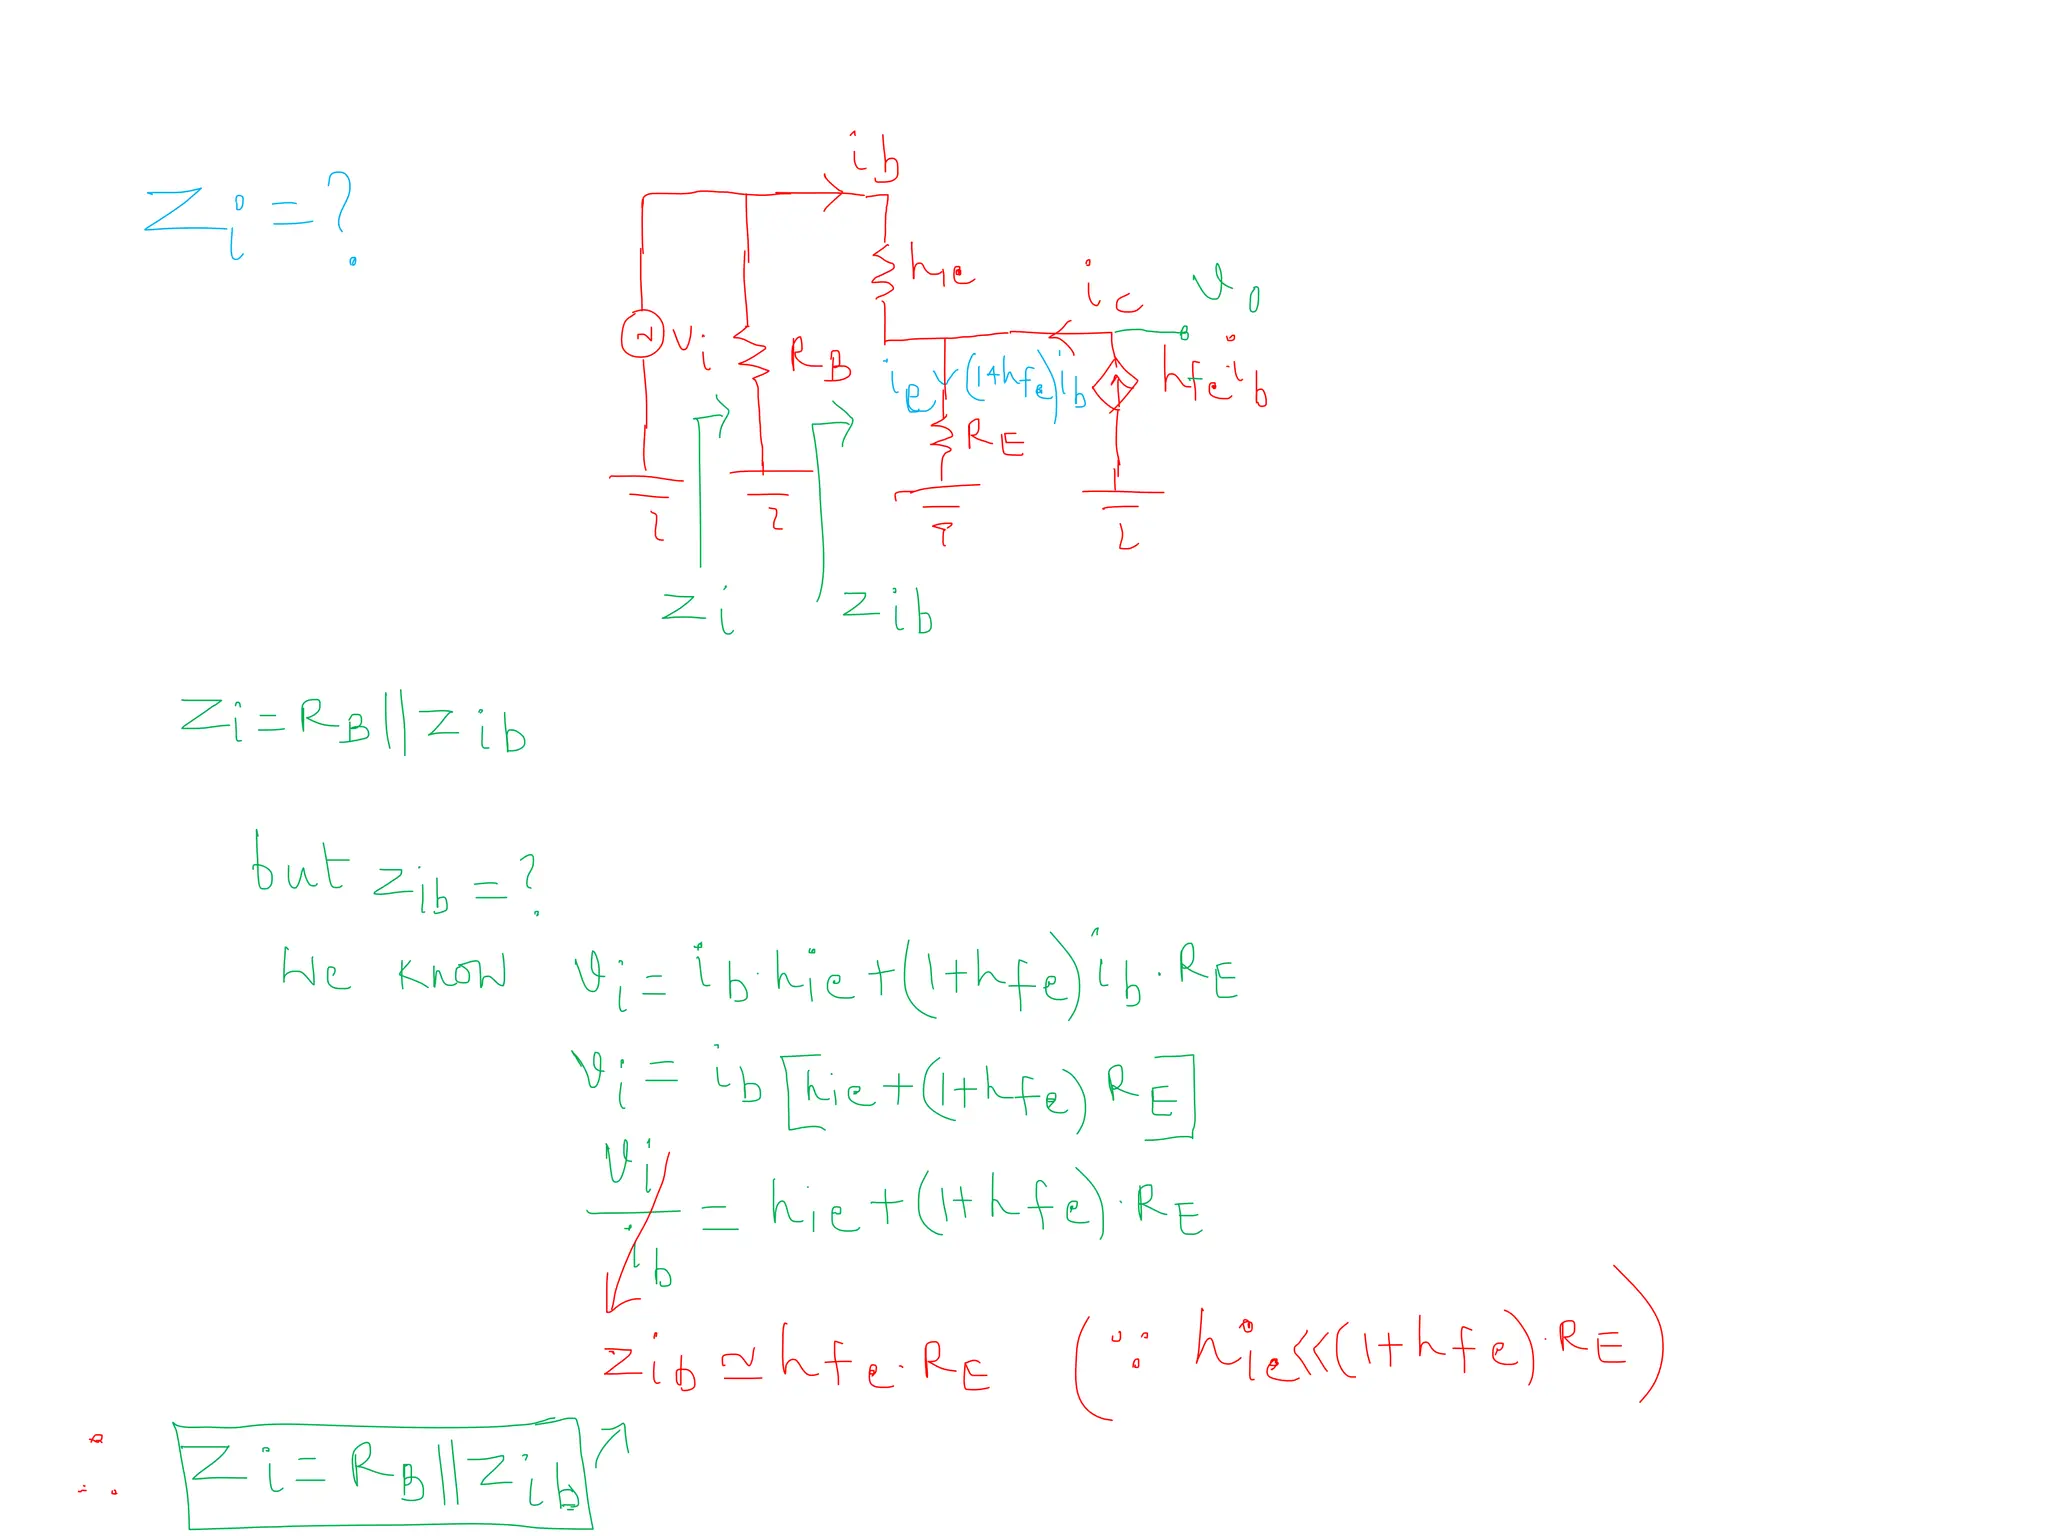 Zi=?
ib
hie
ic
vo
Vi
RB
ie
(1+hfe)ib
hfe ib
RE
Zi
Zib
Zi=RB||Zib
but Zib=?
We know vi=ib·hie+(1+hfe)ib·RE
vi=ib[hie+(1+hfe)RE]
vi/ib=hie+(1+hfe)·RE
Zib≃hfe·RE (∵ hie<<(1+hfe)·RE)
∴ Zi=RB||Zib